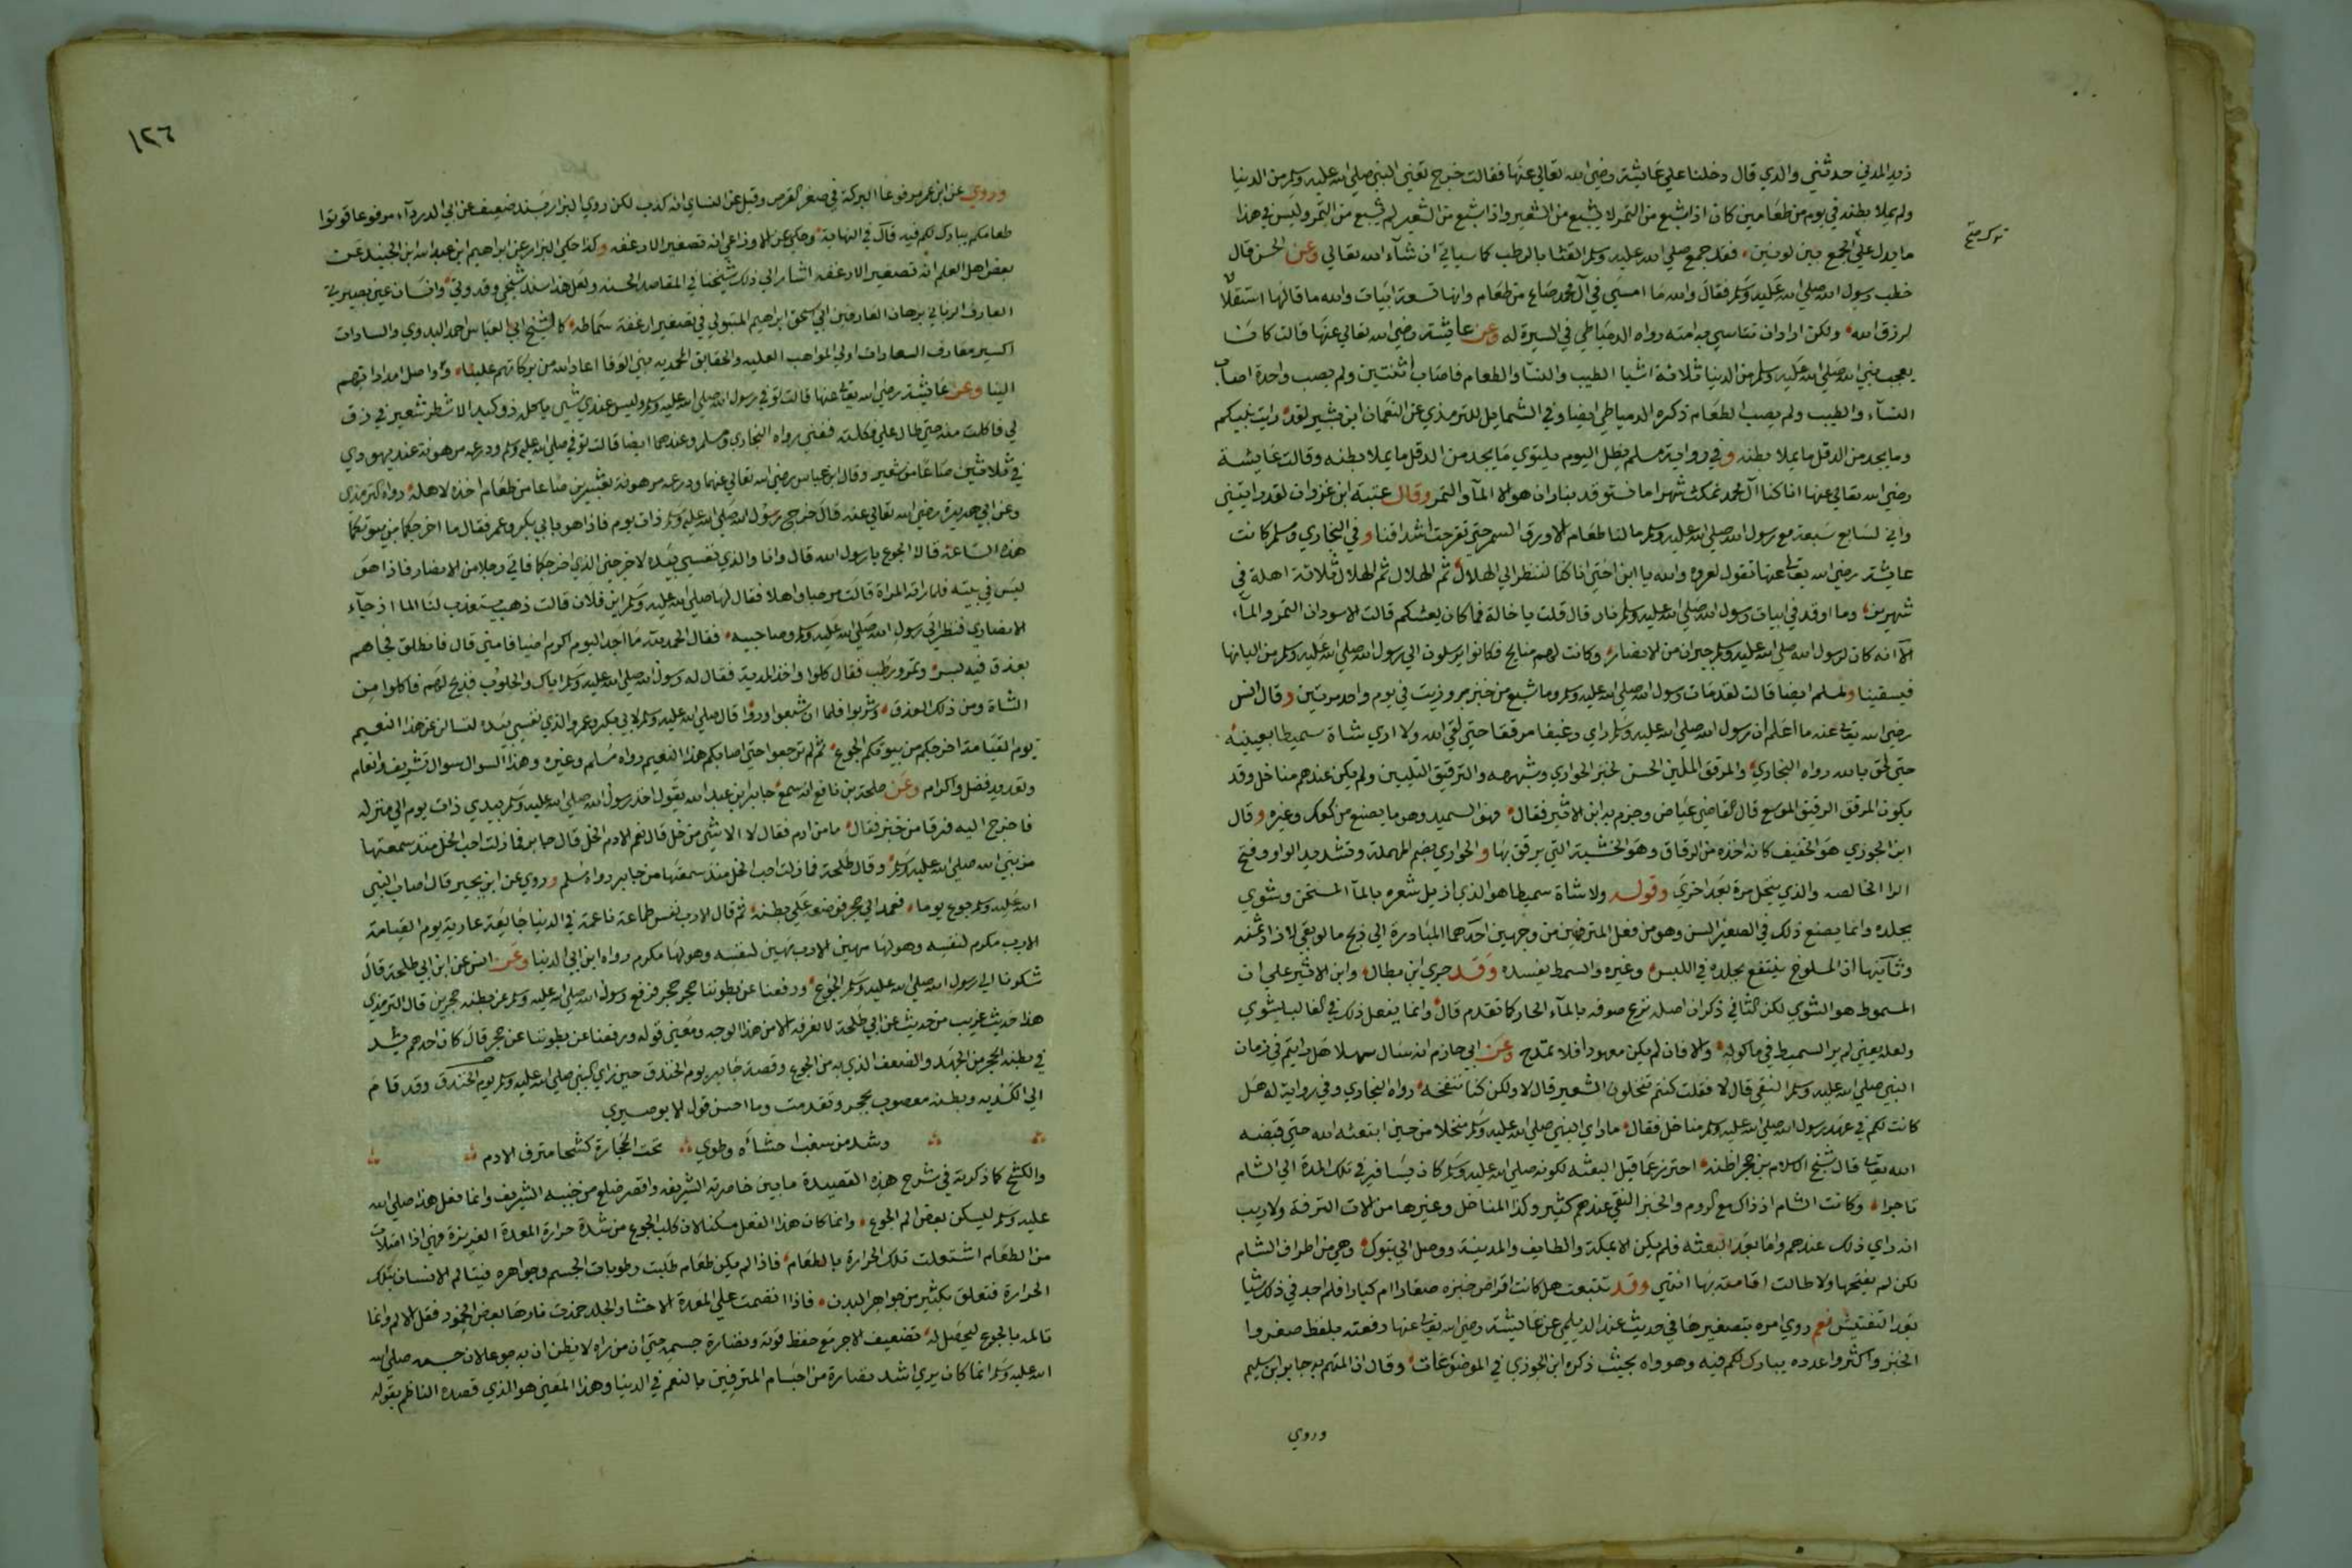 زيد المدني حدثني والدي قال دخلنا علي عايشة رضي الله تعالي عنها فقالت خرج تعني النبي صلي الله عليه وسلم من الدنيا
ولم يملا بطنه في يوم من طعامين كان اذا شبع من التمر لا يشبع من الشعير واذا شبع من الشعير لم يشبع من التمر وليس في هذا
ما يدل علي الجمع بين لونين فقد جمع صلي الله عليه وسلم القثا بالرطب كما سياتي ان شاء الله تعالي وعن الحسن قال
خطب رسول الله صلي الله عليه وسلم فقال والله ما امسي في آل محمد صاع من طعام وانها تسعة ابيات والله ما قالها استقلالا
لرزق الله ولكن اراد ان تتاسي به امته رواه الدمياطي في السيرة له وعن عايشة رضي الله تعالي عنها قالت كان
يعجب نبي الله صلي الله عليه وسلم من الدنيا ثلاثة اشيا الطيب والنسا والطعام فاصاب اثنتين ولم يصب واحدة اصاب
النساء والطيب ولم يصب الطعام ذكره الدمياطي ايضا وفي الشمايل للترمذي عن النعمان ابن بشير لقد رايت نبيكم
وما يجد من الدقل ما يملا بطنه وفي رواية مسلم يظل اليوم يلتوي ما يجد من الدقل ما يملا بطنه وقالت عايشة
رضي الله تعالي عنها انا كنا آل محمد نمكث شهرا ما نستوقد بنار ان هو الا الماء والتمر وقال عتبة ابن غزوان لقد رايتني
واني لسابع سبعة مع رسول الله صلي الله عليه وسلم ما لنا طعام الا ورق السمر حتي تقرحت اشداقنا وفي البخاري ومسلم كانت
عايشة رضي الله تعالي عنها تقول لعروة والله يا ابن اختي انا كنا لننظر الي الهلال ثم الهلال ثم الهلال ثلاثة اهلة في
شهرين وما اوقد في ابيات رسول الله صلي الله عليه وسلم نار قال قلت يا خالة فما كان يعيشكم قالت الاسودان التمر والماء
الا انه كان لرسول الله صلي الله عليه وسلم جيران من الانصار وكانت لهم منايح فكانوا يرسلون الي رسول الله صلي الله عليه وسلم من البانها
فيسقينا ولمسلم ايضا قالت لقد مات رسول الله صلي الله عليه وسلم وما شبع من خبز بر وزيت في يوم واحد مرتين وقال انس
رضي الله تعالي عنه ما اعلم ان رسول الله صلي الله عليه وسلم راي رغيفا مرققا حتي لقي الله ولا اري شاة سميطا بعينيه
حتي لحق بالله رواه البخاري والمرقق الملين الحسن كخبز الحواري وشبهه والترقيق التليين ولم يكن عندهم مناخل وقد
يكون المرقق الرقيق الموسع قال القاضي عياض وجزم به ابن الاثير فقال وهو السميد وهو ما يصنع من كعك وغيره وقال
ابن الجوزي هو الخفيف كانه اخذه من الرقاق وهو الخشبة التي يرقق بها والحواري بضم المهملة وتشديد الواو وفتح
الرا الخالصه والذي ينخل مرة بعد اخري وقوله ولا شاة سميطا هو الذي ازيل شعره بالما المسخن وشوي
بجلده وانما يصنع ذلك في الصغير السن وهو من فعل المترفين من وجهين احدهما المبادرة الي ذبح ما لو بقي لازداد ثمنه
وثانيها ان المسلوخ ينتفع بجلده في اللبس وغيره والسمط يفسده وقد جري ابن بطال وابن الاثير علي ان
المسموط هو الشوي لكن الثاني ذكر ان اصله نزع صوفه بالماء الحار كما تقدم قال وانما يفعل ذلك في الغالب ليشوي
ولعله يعني لم ير السميط في ماكوله والا فان لم يكن معهودا فلا تمدح وعن ابي حازم انه سال سهلا هل رايتم في زمان
النبي صلي الله عليه وسلم النقي قال لا فقلت كنتم تنخلون الشعير قال لا ولكن كنا ننفخه رواه البخاري وفي رواية له هل
كانت لكم في عهد رسول الله صلي الله عليه وسلم مناخل فقال ما راي النبي صلي الله عليه وسلم منخلا من حين ابتعثه الله حتي قبضه
الله تعالي قال شيخ الاسلام بن حجر اظنه احترز عما قبل البعثه لكونه صلي الله عليه وسلم كان يسافر في تلك المدة الي الشام
تاجرا وكانت الشام اذ ذاك مع الروم والخبز النقي عندهم كثير وكذا المناخل وغيرها من الات الترفة ولا ريب
انه راي ذلك عندهم واما بعد البعثه فلم يكن الا بمكة والطايف والمدينة ووصل الي تبوك وهي من اطراف الشام
لكن لم يفتحها ولا طالت اقامته بها انتهي وقد تتبعت هل كانت اقراص خبزه صغارا ام كبارا فلم اجد في ذلك شيا
بعد التفتيش نعم روي امره بتصغيرها في حديث عند الديلمي عن عايشة رضي الله تعالي عنها رفعته بلفظ صغروا
الخبز واكثروا عدده يبارك لكم فيه وهو واه بحيث ذكره ابن الجوزي في الموضوعات وقال ان المتهم به جابر ابن سليم
وروي
١٢٦
وروي عن ابن عمر مرفوعا البركة في صغر القرص وقيل عن النساي انه كذب لكن روي البزار بسند ضعيف عن ابي الدرداء مرفوعا قوتوا
طعامكم يبارك لكم فيه قال في النهاية وحكي عن الاوزاعي انه تصغير الارغفه وكذا حكي البزار عن ابراهيم ابن عبد الله ابن الجنيد عن
بعض اهل العلم انه تصغير الارغفه اشار الي ذلك شيخنا في المقاصد الحسنه ولعل هذا سند شيخي وقدوتي وانسان عين بصيرتي
العارف الرباني برهان العارفين ابي اسحق ابراهيم المتبولي في تصغير ارغفة سماطه كالشيخ ابي العباس احمد البدوي والسادات
اكسير معارف السعادات اولي المواهب العليه والحقايق المحمديه بني الوفا اعاد الله من بركاتهم علينا وواصل امداداتهم
الينا وعن عايشة رضي الله تعالي عنها قالت توفي رسول الله صلي الله عليه وسلم وليس عندي شي ياكله ذو كبد الا شطر شعير في رف
لي فاكلت منه حتي طال علي فكلته ففني رواه البخاري ومسلم وعندهما ايضا قالت توفي صلي الله عليه وسلم ودرعه مرهونة عند يهودي
في ثلاثين صاعا من شعير وقال ابن عباس رضي الله تعالي عنهما ودرعه مرهونة بعشرين صاعا من طعام اخذه لاهله رواه الترمذي
وعن ابي هريرة رضي الله تعالي عنه قال خرج رسول الله صلي الله عليه وسلم ذات يوم فاذا هو بابي بكر وعمر فقال ما اخرجكما من بيوتكما
هذه الساعة قالا الجوع يا رسول الله قال وانا والذي نفسي بيده لاخرجني الذي اخرجكما فاتي رجلا من الانصار فاذا هو
ليس في بيته فلما راته المراة قالت مرحبا واهلا فقال لها صلي الله عليه وسلم اين فلان قالت ذهب يستعذب لنا الما اذ جاء
الانصاري فنظر الي رسول الله صلي الله عليه وسلم وصاحبيه فقال الحمد لله ما احد اليوم اكرم اضيافا مني قال فانطلق فجاهم
بعذق فيه بسر وتمر ورطب فقال كلوا واخذ المدية فقال له رسول الله صلي الله عليه وسلم اياك والحلوب فذبح لهم فاكلوا من
الشاة ومن ذلك العذق وشربوا فلما ان شبعوا ورووا قال صلي الله عليه وسلم لابي بكر وعمر والذي نفسي بيده لتسالن عن هذا النعيم
يوم القيامة اخرجكم من بيوتكم الجوع ثم لم ترجعوا حتي اصابكم هذا النعيم رواه مسلم وغيره وهذا السوال سوال تشريف وانعام
وتعديد فضل واكرام وعن طلحة بن نافع انه سمع جابر ابن عبد الله يقول اخذ رسول الله صلي الله عليه وسلم بيدي ذات يوم الي منزله
فاخرج اليه فرقا من خبز فقال ما من ادم فقال لا الا شي من خل قال نعم الادم الخل قال جابر فما زلت احب الخل منذ سمعتها
من نبي الله صلي الله عليه وسلم وقال طلحة فما زلت احب الخل منذ سمعتها من جابر رواه مسلم وروي عن ابن بجير قال اصاب النبي
الله عليه وسلم جوع يوما فعمد الي حجر فوضعه علي بطنه ثم قال الا رب نفس طاعمة ناعمة في الدنيا جايعة عارية يوم القيامة
الا رب مكرم لنفسه وهو لها مهين الا رب مهين لنفسه وهو لها مكرم رواه ابن ابي الدنيا وعن انس عن ابن ابي طلحة قال
شكونا الي رسول الله صلي الله عليه وسلم الجوع ورفعنا عن بطوننا حجر حجر فرفع رسول الله صلي الله عليه وسلم عن بطنه حجرين قال الترمذي
هذا حديث غريب من حديث عن ابي طلحة لا نعرفه الا من هذا الوجه ومعني قوله ورفعنا عن بطوننا عن حجر قال كان احدهم يشد
في بطنه الحجر من الجهد والضعف الذي به من الجوع وقصة جابر يوم الخندق حين راي النبي صلي الله عليه وسلم يوم الخندق وقد قام
الي الكدية وبطنه معصوب بحجر وتقدمت وما احسن قول الابوصيري
وشد من سغب احشاه وطوي تحت الحجارة كشحا مترف الادم
والكشح كما ذكرته في شرح هذه القصيدة ما بين خاصرته الشريفه واقصر ضلع من جنبه الشريف وانما فعل هذا صلي الله
عليه وسلم ليسكن بعض الم الجوع وانما كان هذا الفعل مسكنا لان كلب الجوع من شدة حرارة المعدة الغريزة فهي اذا امتلات
من الطعام اشتعلت تلك الحرارة بالطعام فاذا لم يكن طعام طلبت رطوبات الجسم وجواهره فيتالم الانسان بتلك
الحرارة فتعلق بكثير من جواهر البدن فاذا انضمت علي المعدة الاحشا والجلد خمدت نارها بعض الخمود فقل الالم وانما
تالمه بالجوع ليحصل له تضعيف الاجر مع حفظ قوته ونضارة جسمه حتي ان من راه لا يظن ان به جوعا لان جسمه صلي الله
الله عليه وسلم انما كان يري اشد نضارة من اجسام المترفين بالنعم في الدنيا وهذا المعني هو الذي قصده الناظم بقوله